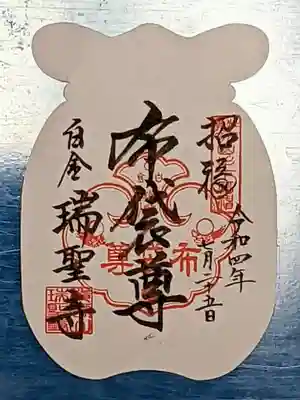 招福
令和四年
月二十五日
布袋尊
白金
瑞聖寺